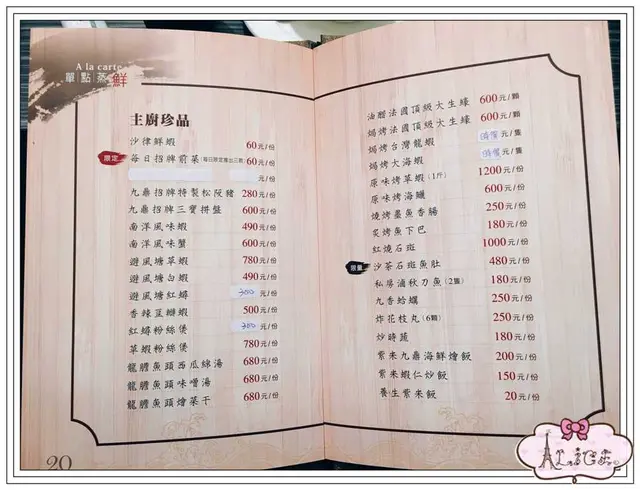 À la carte
單點蒸鮮
主廚珍品
沙律鮮蝦 60元/份
限定 每日招牌前菜(每日限定推出三款) 60元/份
元/份
九鼎招牌特製松阪豬 280元/份
九鼎招牌三寶拼盤 600元/份
南洋風味蝦 490元/份
南洋風味蟹 600元/份
避風塘草蝦 780元/份
避風塘白蝦 490元/份
避風塘紅蟳 300元/份
香辣豆瓣蝦 500元/份
紅蟳粉絲煲 300元/份
草蝦粉絲煲 780元/份
龍膽魚頭西瓜綿湯 680元/份
龍膽魚頭味噌湯 680元/份
龍膽魚頭燴菜干 680元/份
20
油醋法國頂級大生蠔 600元/顆
焗烤法國頂級大生蠔 600元/顆
焗烤台灣龍蝦 時價元/隻
焗烤大海蝦 時價元/隻
原味烤草蝦(1斤) 1200元/份
原味烤海鱺 600元/份
燒烤墨魚香腸 250元/份
炙烤魚下巴 180元/份
紅燒石斑 1000元/份
限量 沙茶石斑魚肚 480元/份
私房滷秋刀魚(2隻) 180元/份
九香蛤蠣 250元/份
炸花枝丸(6顆) 250元/份
炒時蔬 180元/份
紫米九鼎海鮮燴飯 200元/份
紫米蝦仁炒飯 150元/份
養生紫米飯 20元/份
ALICE